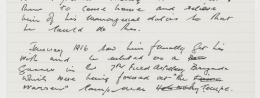 them to come home and relieve
him of his managerial duties so that
he could do his.
January 1916 saw him finally get his
wish and he enlisted as a
Gunner in the Field Artillery Brigade
which were being formed at the
Warwick Camp